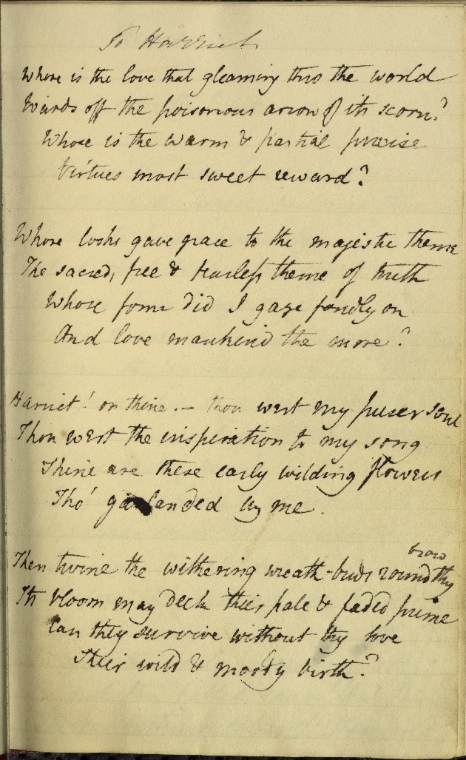 To Harriet
Whose is the love that gleaming thro the world
Wards off the poisonous arrow of its scorn?
Whose is the warm & partial praise
Virtues most sweet reward?
Whose looks gave grace to the majestic theme
The sacred, free & fearless theme of truth
Whose form did I gaze fondly on
And love mankind the more?
Harriet! on thine. — thou wert my purer soul
Thou wert the inspiration to my song
Thine are these early wilding flowers
Tho' garlanded by me.
Then twine the withering wreath-buds round thy brow
Its bloom may deck their pale & faded prime
Can they survive without thy love
Their wild & moody birth?